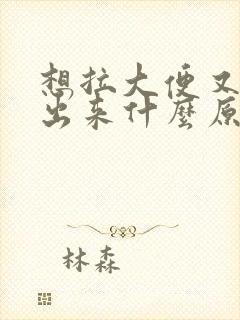 想拉大便又
出来什麼原
林森